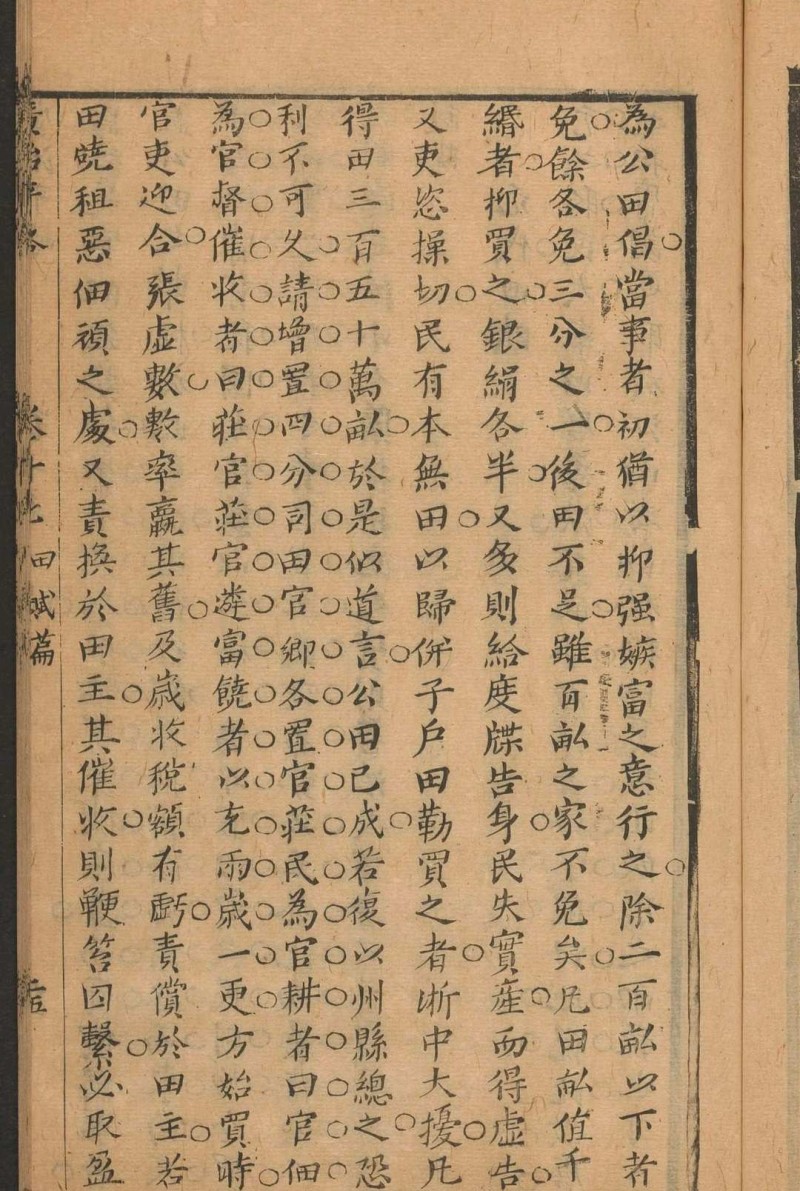 為公田倡當事者初猶以抑强嫉富之意行之除二百畝以下者
免餘各免三分之一後田不足雖百畝之家不免矣凢田畝值千
緡者抑買之銀絹各半又多則給度牒告身民失實産而得虛告
又吏恣操切民有本無田以歸併子戶田勒買之者浙中大擾凢
得田三百五十萬畝於是似道言公田已成若復以州縣總之恐
利不可久請增置四分司田官鄉各置官莊民為官耕者曰官佃
為官督催收者曰莊官莊官遴富饒者以充兩歲一更方始買時
官吏迎合張虛數數率羸其舊及歲收稅額有虧責償於田主若
田磽租惡佃頑之處又責換於田主其催收則鞭笞囚繫必取盈
田賦篇